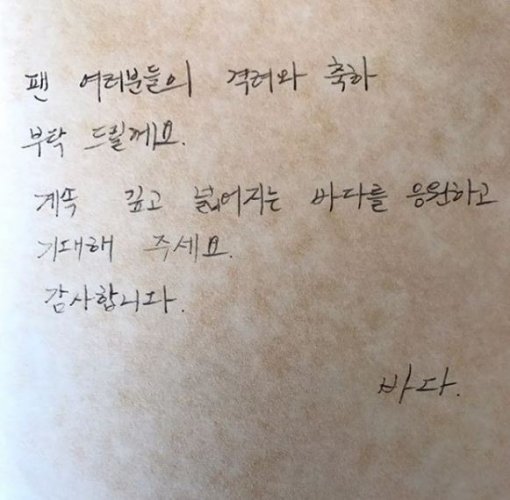 팬 여러분들의 격려와 축하
부탁 드릴께요.
계속 깊고 넓어지는 바다를 응원하고
기대해 주세요.
감사합니다.
바다.